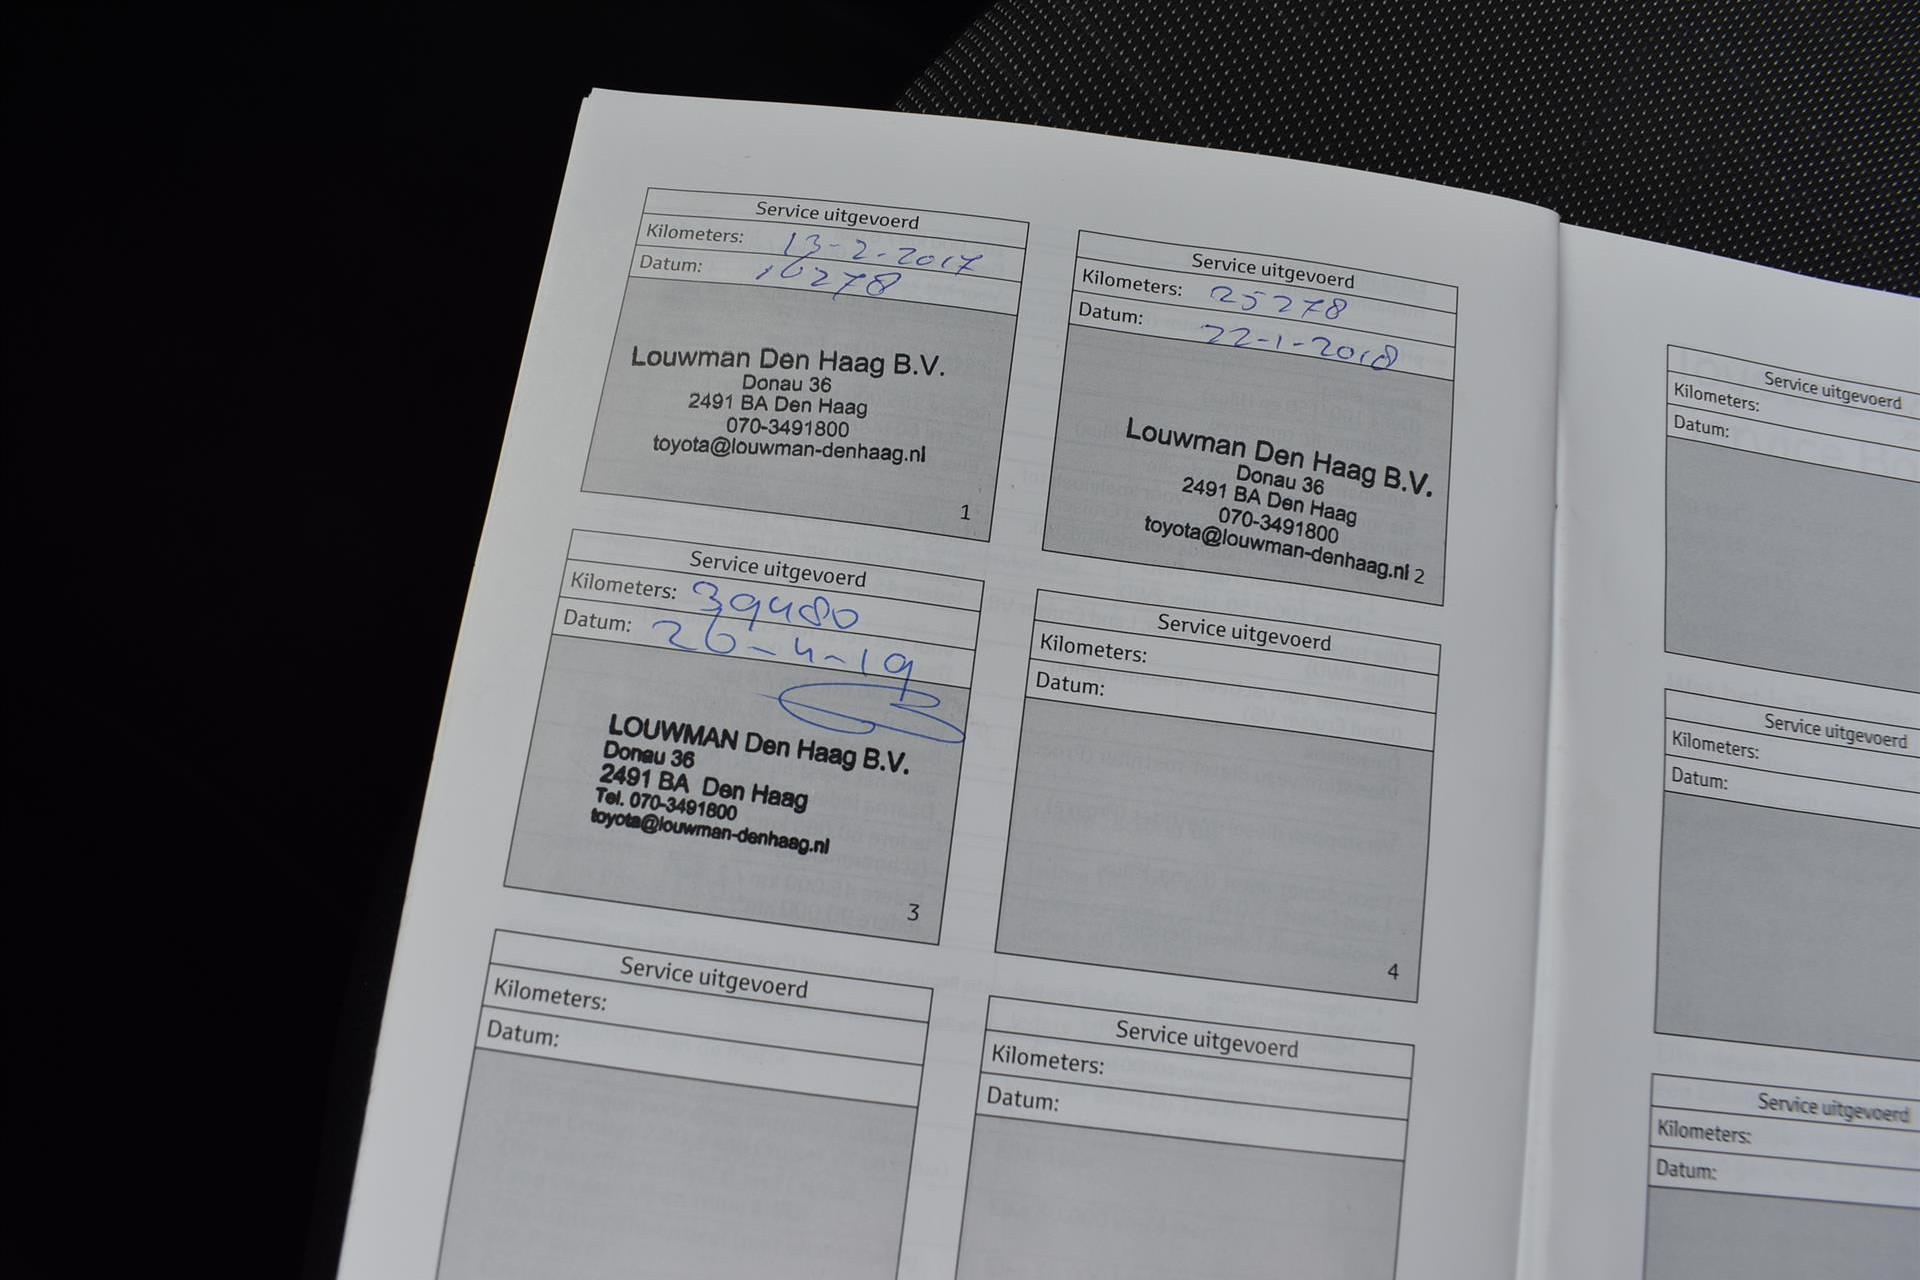 Service uitgevoerd
Kilometers: 13-2-2017
Datum: 16278
Louwman Den Haag B.V.
Donau 36
2491 BA Den Haag
070-3491800
toyota@louwman-denhaag.nl
1
Service uitgevoerd
Kilometers: 25278
Datum: 22-1-2018
Louwman Den Haag B.V.
Donau 36
2491 BA Den Haag
070-3491800
toyota@louwman-denhaag.nl 2
Service uitgevoerd
Kilometers: 39480
Datum: 26-4-19
LOUWMAN Den Haag B.V.
Donau 36
2491 BA Den Haag
Tel. 070-3491800
toyota@louwman-denhaag.nl
3
Service uitgevoerd
Kilometers:
Datum:
4
Service uitgevoerd
Kilometers:
Datum:
Service uitgevoerd
Kilometers:
Datum:
Service uitgevoerd
Kilometers:
Datum:
Service uitgevoerd
Kilometers:
Datum:
Service uitgevoerd
Kilometers:
Datum: